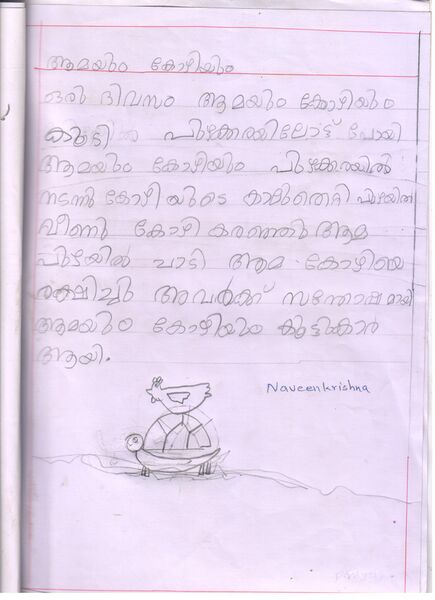 ആമയും കോഴിയും
ഒരു ദിവസം ആമയും കോഴിയും
പുഴക്കരയിലോട്ട് പോയി
ആമയും കോഴിയും പുഴക്കരയിൽ
നടന്നു കോഴിയുടെ കാലുതെറ്റി പുഴയിൽ
വീണു കോഴി കരഞ്ഞു ആമ
പുഴയിൽ ചാടി ആമ കോഴിയെ
രക്ഷിച്ചു അവർക്ക് സന്തോഷമായി
ആമയും കോഴിയും കൂട്ടുകാർ
ആയി.
Naveenkrishna